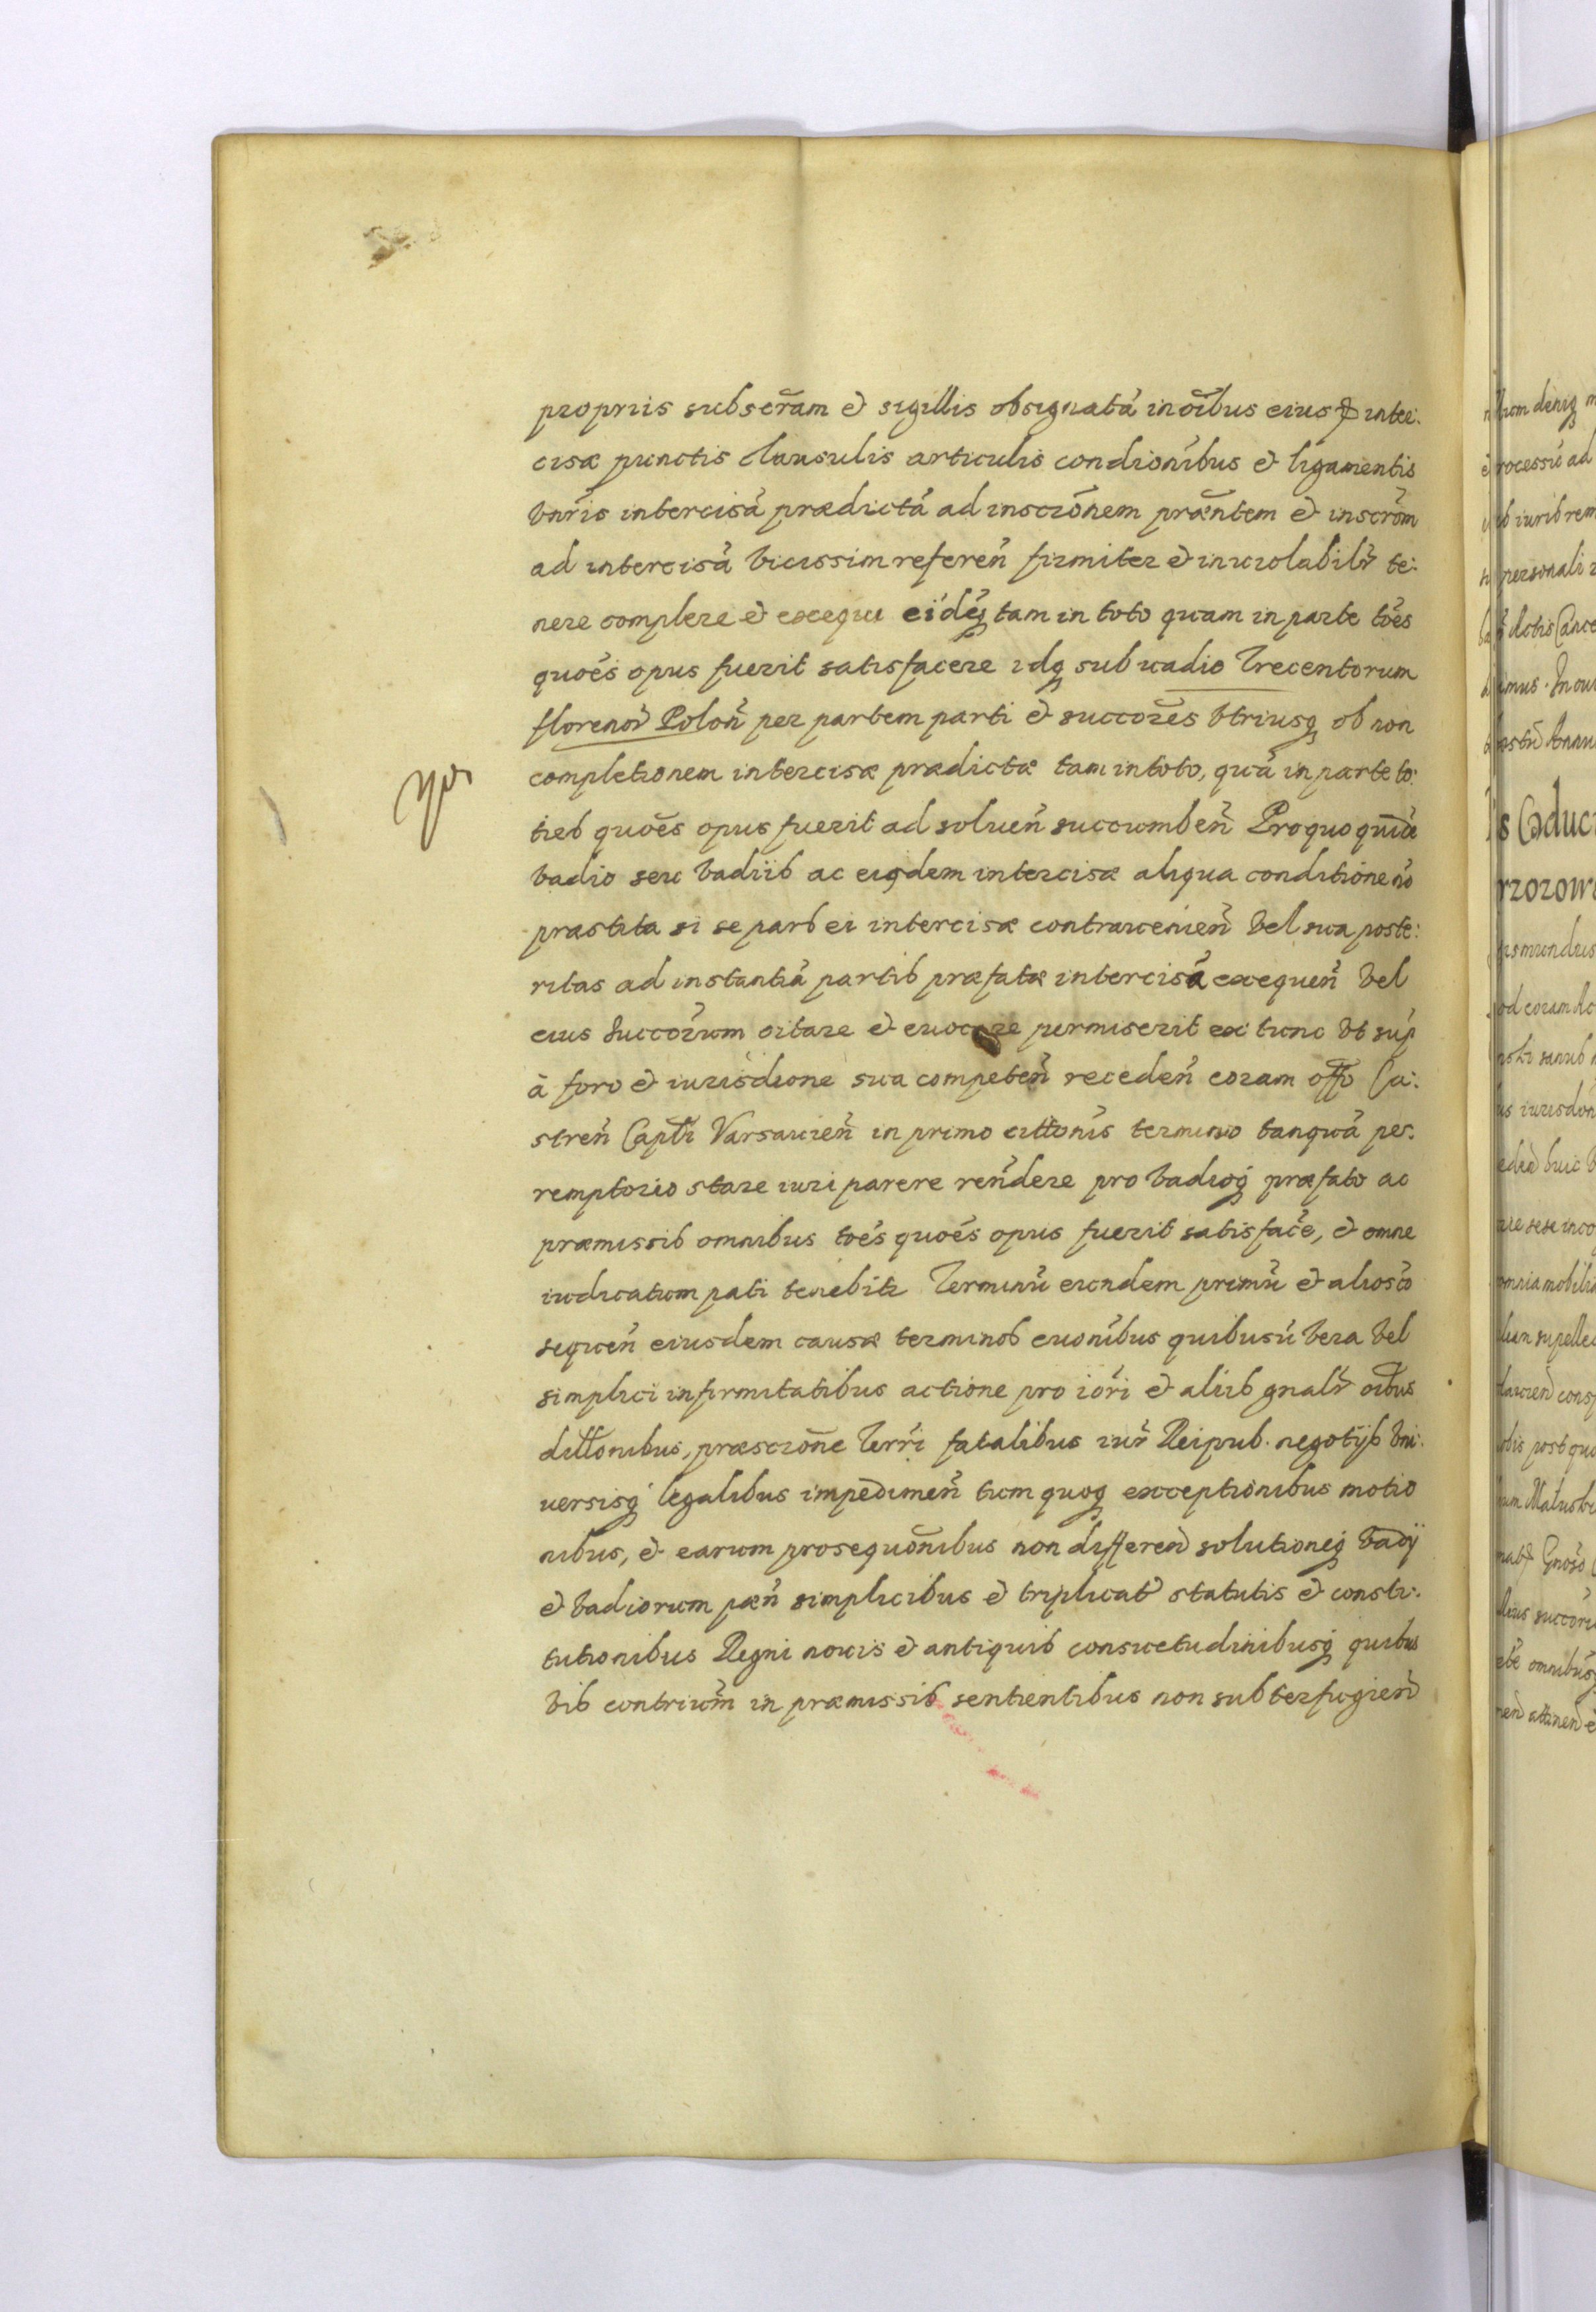 propriis subscr̃am et sigillis obsignatá in oĩbus eius inter:
cisæ punctis clausulis articulis condionĩbus et ligamentis
vnr̃is intercisá prædictá ad inscriõnem præñtem et inscr̃om
ad intercisá vicissim referen̄ firmiter et inuiolabilr̄ te:
nere complere et exequi eidéq tam in toto quam in parte toẽs
quoẽs opus fuerit satisfacere idq sub vadio Trecentorum
florenor̄ Polon̄ per partem parti et succores vtriusq ob non
completionem intercisæ prædictæ tam in toto, quá in parte to:
ties quoẽs opus fuerit ad soluen̄ succumben̄ Pro quo quidẽ
vadio seu vadiis ac eiqdem intercisæ aliqua conditione nõ
præstita si se pars ei intercisæ contrauenien̄ vel sua poste:
ritas ad instantiá partis præfatæ intercisá exequen̄ vel
eius succorum citare et euocare permiserit ex tunc vt sup̄
à foro et iurisdione sua competen̄ receden̄ coram offo Ca:
stren̄ Captli Varsauien̄ in primo cittonis termino tanquá per:
remptorio stare iuri parere ren̄dere pro vadioq præfato ac
præmissis omnibus toẽs quoẽs opus fuerit satisfacẽ, et omne
iudicatum pati tenebitr Terminũ eundem primũ et alios cõ
sequen̄ eiusdem causæ terminos euonĩbus quibusũ vera vel
simplici infirmitatibus actione pro iõri et aliis gnalr̄ oĩbus
dillonibus, præscriõne Terr̃i fatalibus iur̄ Reipub. negotijs vni:
uersisq legalibus impedimen̄ tum quoq exceptionibus motio
nibus, et earum prosequõnibus non differen̄ solutioneq vadij
et vadiorum pæn̄ simplicibus et triplicat̄ statutis et consti:
tutionibus Regni nouis et antiquis consuetudinibusq quibus
vis contrium̃ in præmissis sentientibus non subterfugien̄